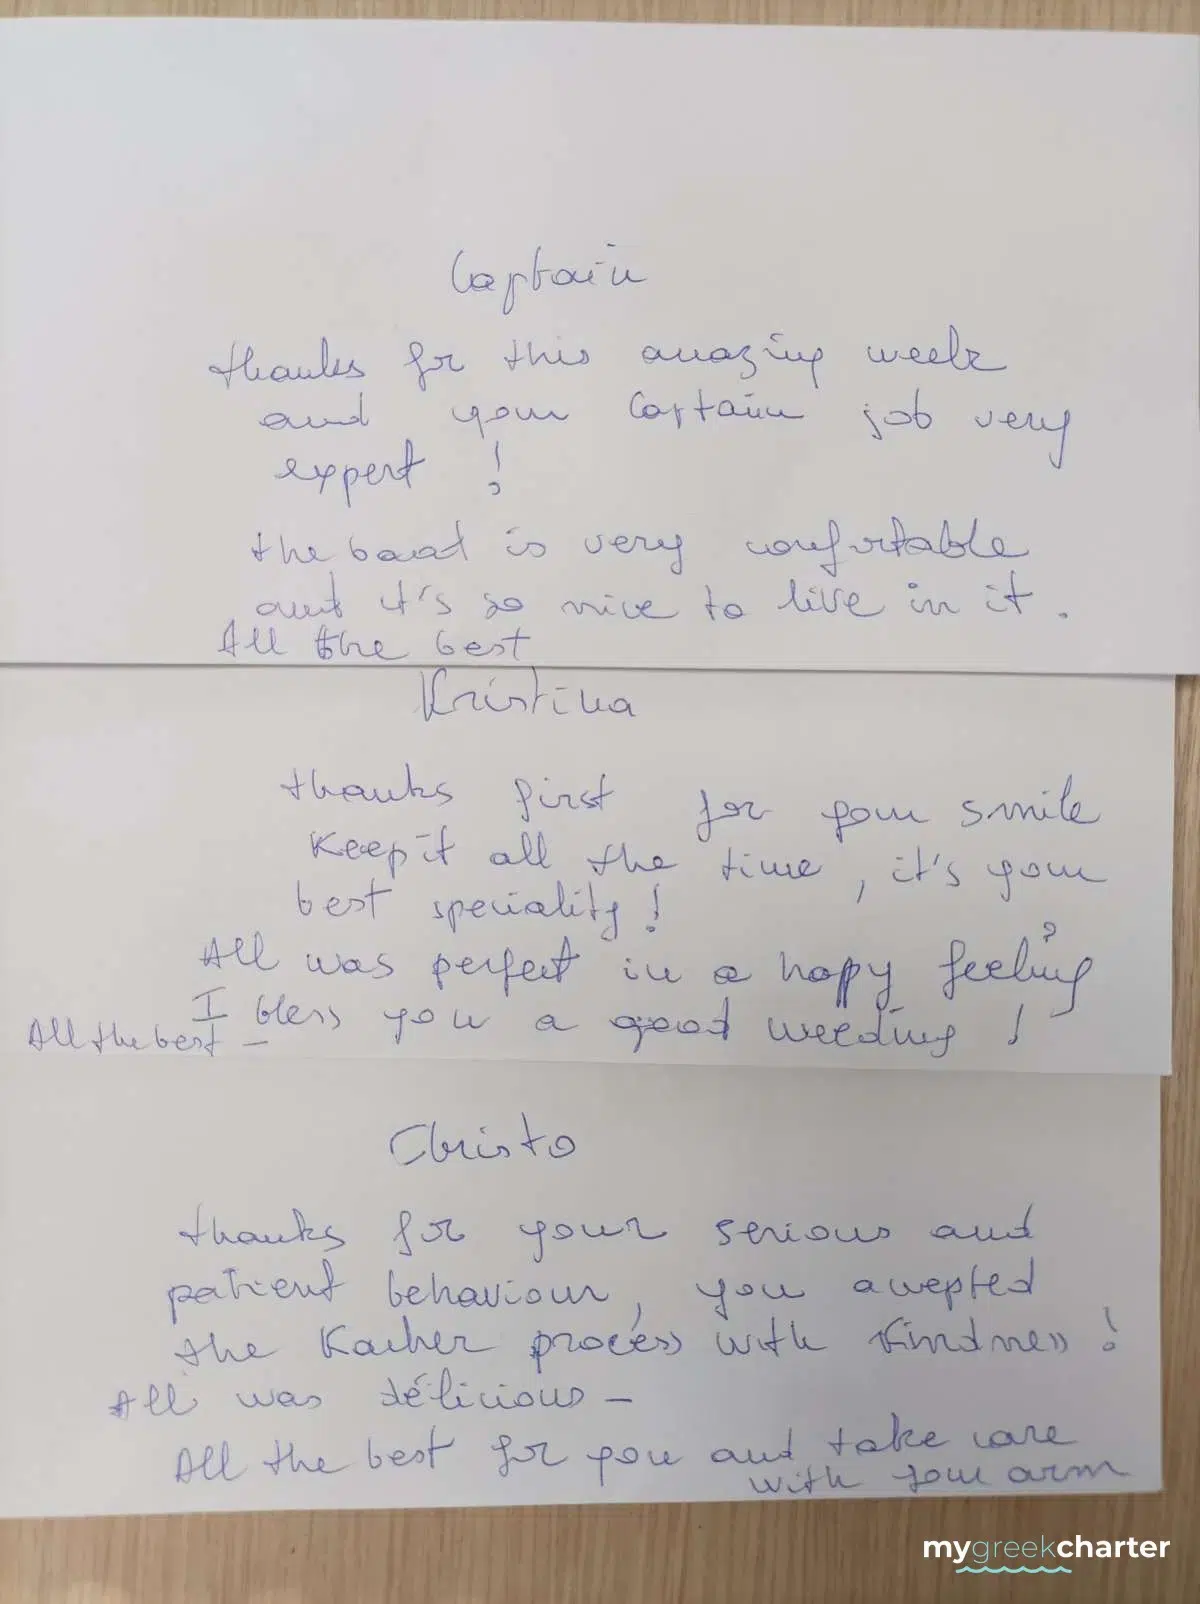 Captain
thanks for this amazing week
and your Captain job very
expert !
the boat is very comfortable
and it's so nice to live in it.
All the best
Kristina
thanks first for your smile
Keep it all the time, it's your
best speciality !
All was perfect in a happy feeling
I bless you a good weeding !
All the best –
Christo
thanks for your serious and
patient behaviour, you accepted
the Kacher process with Kindness !
All was délicious –
All the best for you and take care
with your arm
mygreekcharter